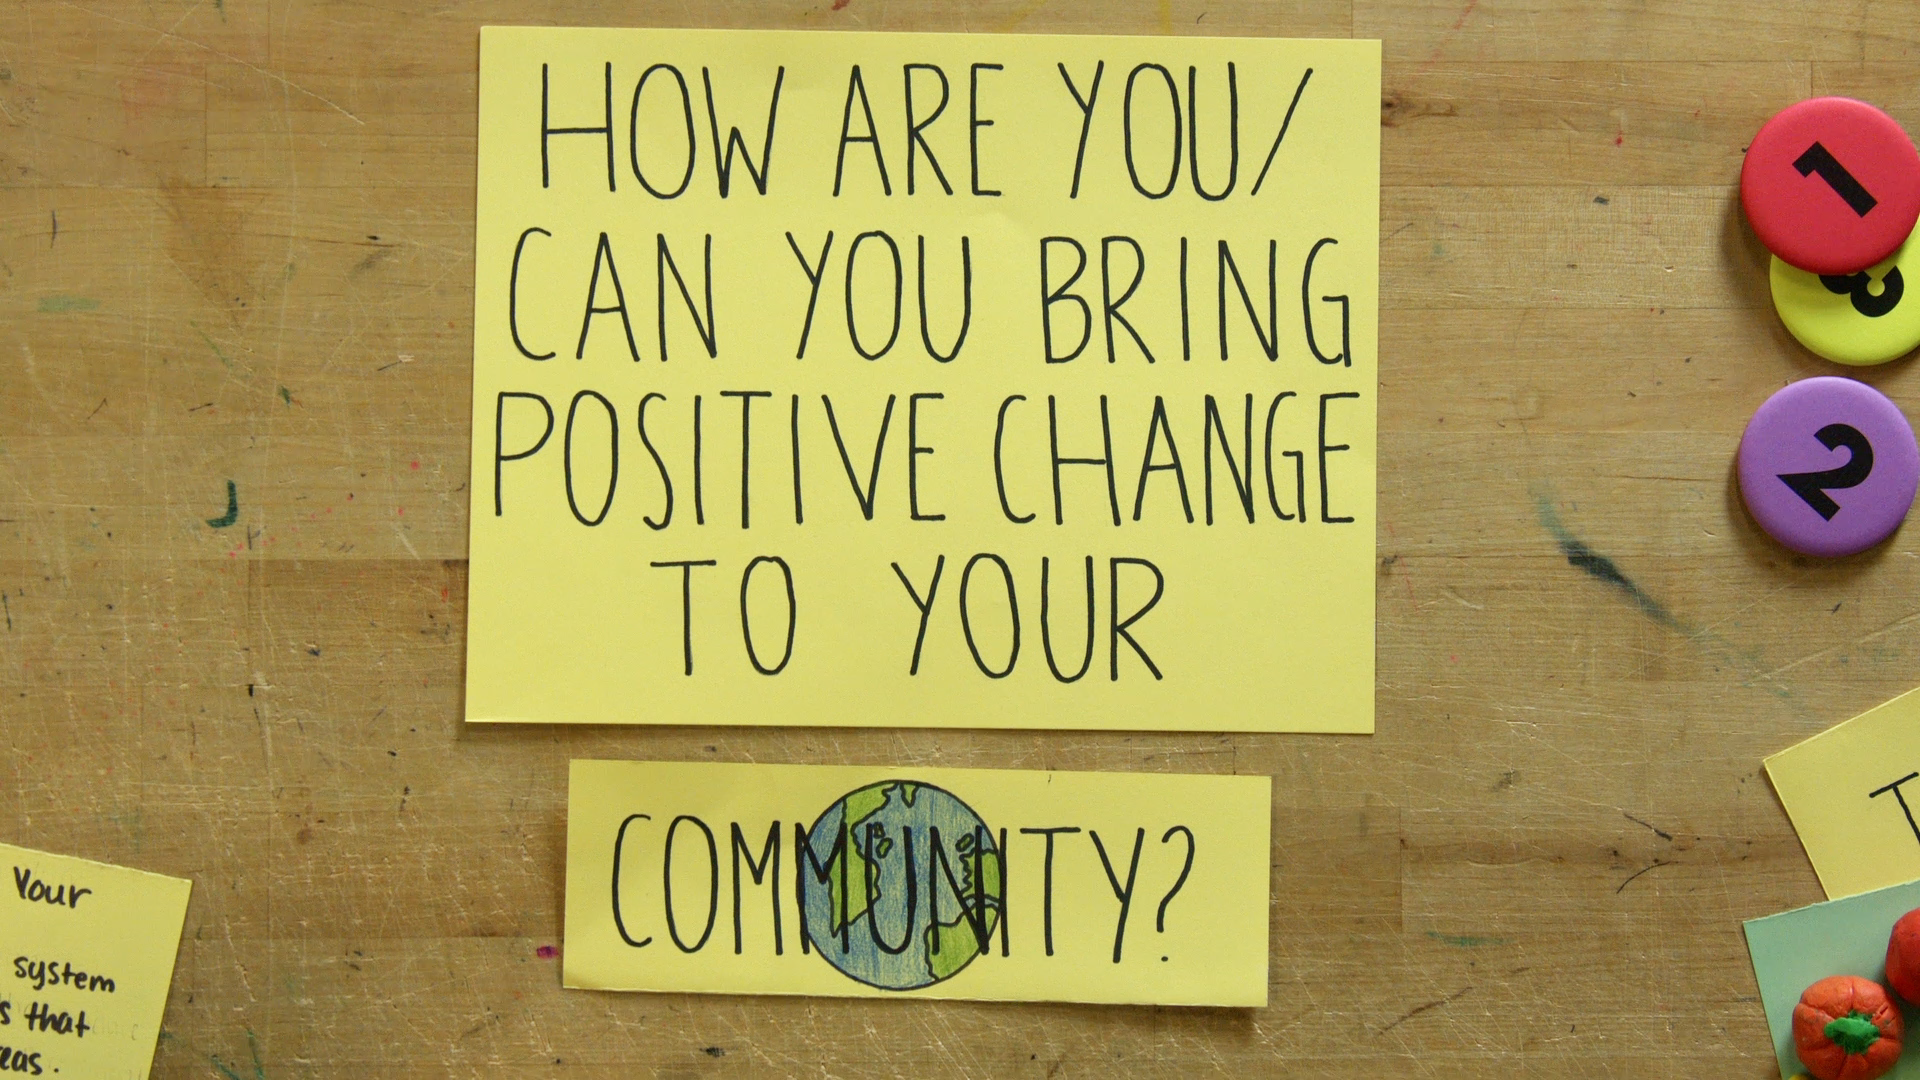 HOW ARE YOU/
CAN YOU BRING
POSITIVE CHANGE
TO YOUR
COMMUNITY?
1
3
2
Your
system
that